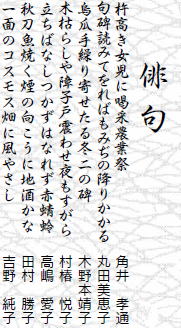 俳句
杵高き女児に喝采農業祭　角井 孝通
句碑読みてをればもみぢの降りかかる　丸田美恵子
烏瓜手繰り寄せたる冬二の碑　木野本靖子
木枯らしや障子戸震わせ夜もすがら　村椿 悦子
立ちばなしつかずはなれず赤蜻蛉　高嶋 愛子
秋刀魚焼く煙の向こうに地酒かな　田村 勝子
一面のコスモス畑に風やさし　吉野 純子